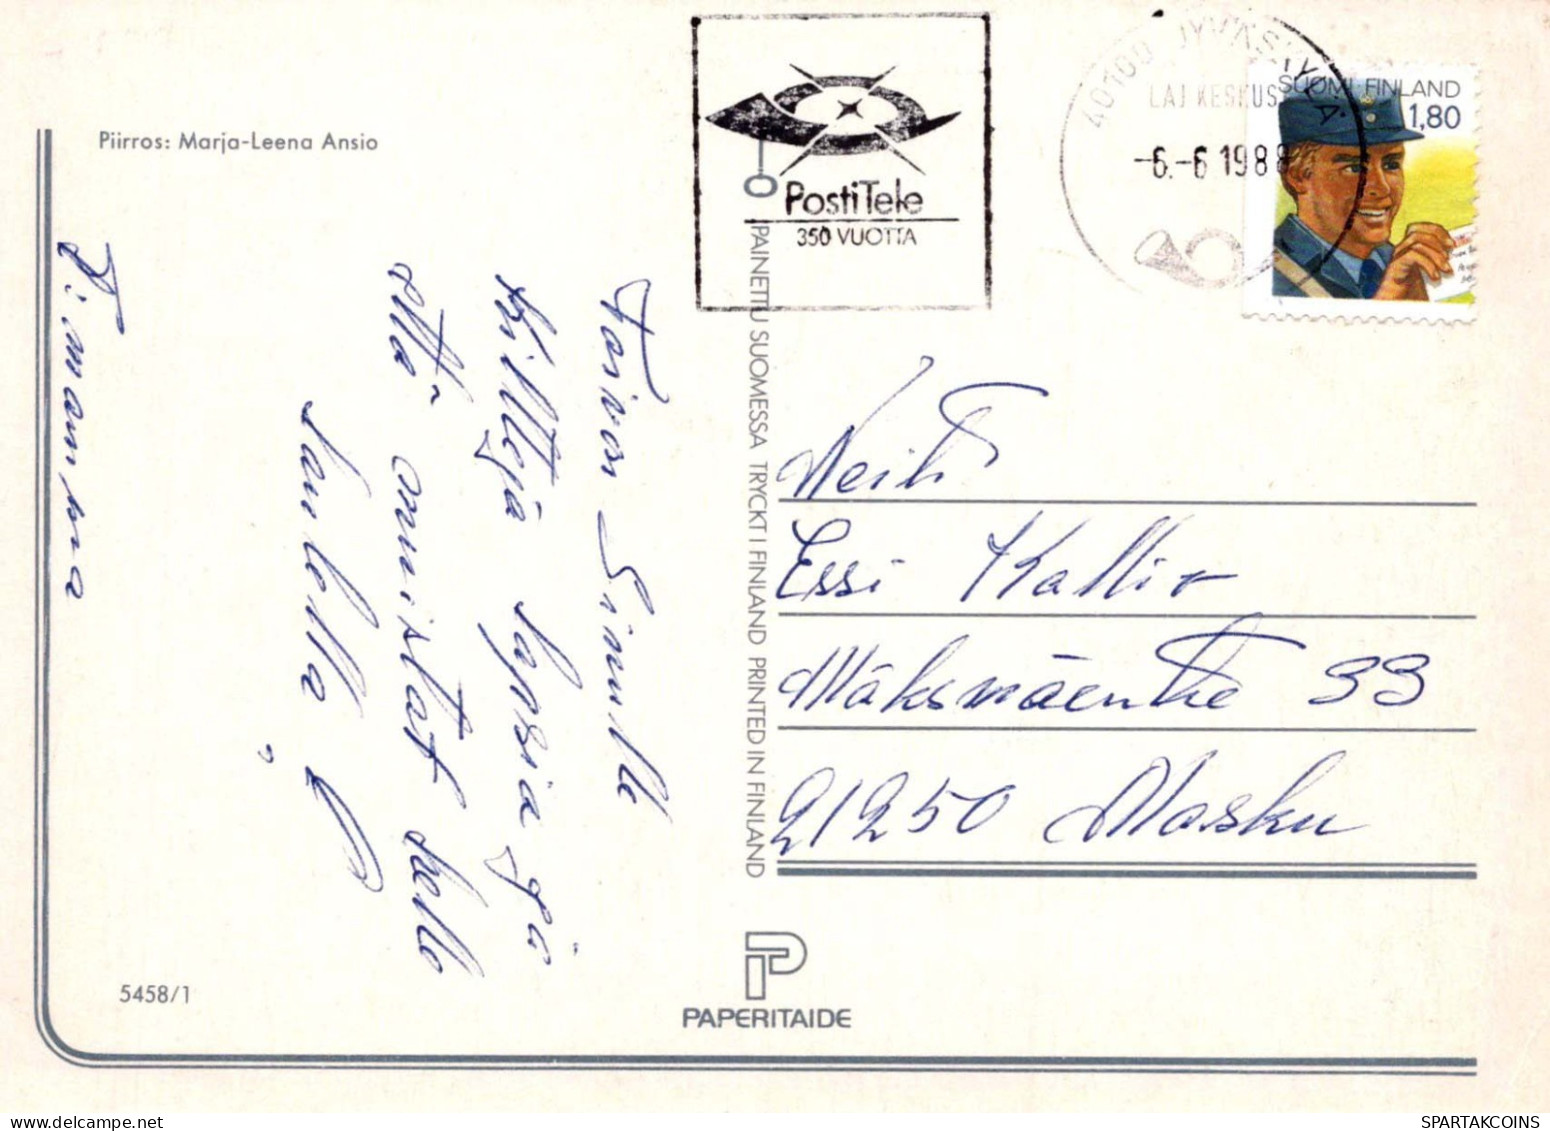 Piirros: Marja-Leena Ansio
PostiTele
350 VUOTTA
40100 JYVÄSKYLÄ
LAJ KESKUS
-6.-6 1988
SUOMI FINLAND
1,80
Toivon Sinulle
kilttejä lapsia ja
että muistat kello
laulella
PAINETTU SUOMESSA TRYCKT I FINLAND PRINTED IN FINLAND
Neiti
Essi Kallio
Mäksmäentie 33
21250 Masku
5458/1
PAPERITAIDE
SPARTAKCOINS
WWW.SPARTAKCOINS.COM